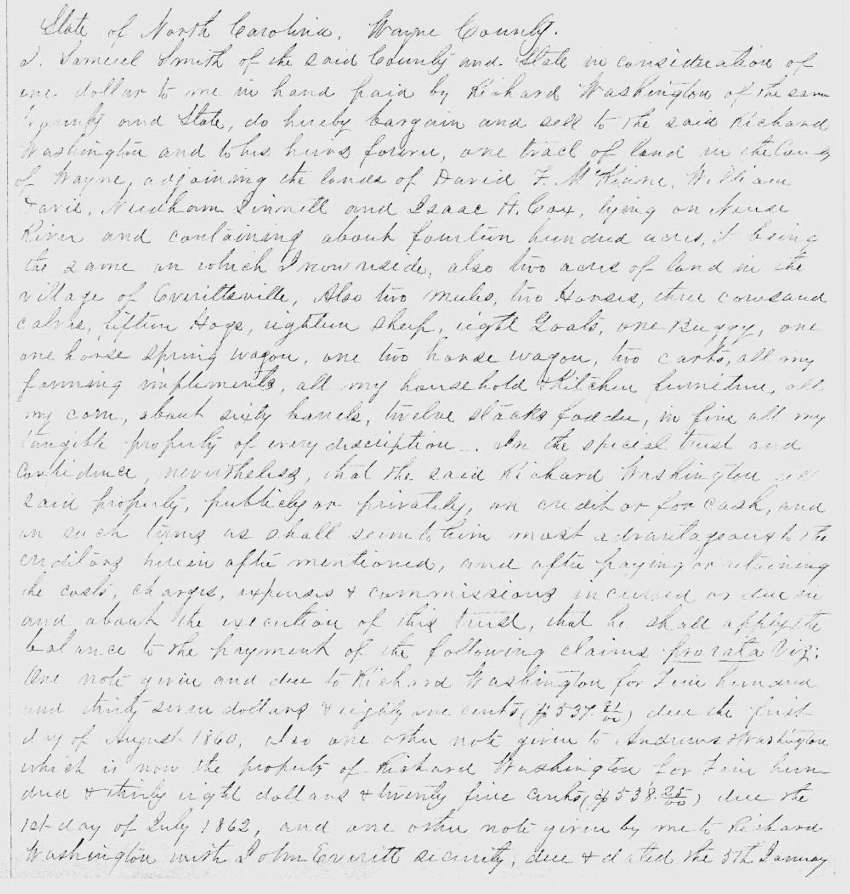 State of North Carolina. Wayne County.
I. Samuel Smith of the said County and State in consideration of
one dollar to me in hand paid by Richard Washington of the same
County and State, do hereby bargain and sell to the said Richard
Washington and to his heirs forever, one tract of land in the County
of Wayne, adjoining the lands of David F. McKinne, William
Davis, Needham Sinnett and Isaac H. Cox, lying on Neuse
River and containing about fourteen hundred acres, it being
the same on which I now reside, also two acres of land in the
village of Everittsville, Also two mules, two Horses, three cows and
calves, fifteen Hogs, eighteen sheep, eight Goats, one Buggy, one
one horse spring wagon, one two horse wagon, two carts, all my
farming implements, all my household & Kitchen furniture, all
my corn, about sixty barrels, twelve stacks fodder, in fine all my
tangible property of every discription. In the special trust and
Confidence, nevertheless, that the said Richard Washington sell
said property, publicly or privately, on credit or for cash, and
on such terms as shall seem to him most advantageous to the
creditors herein after mentioned, and after paying or retaining
the costs, charges, expenses & commissions incurred or due in
and about the execution of this trust, that he shall apply the
balance to the payment of the following claims pro rata Viz:
One note given and due to Richard Washington for Five hundred
and thirty seven dollars & eighty one cents ($537.81/00) due the first
day of August 1860, also one other note given to Andrews & Washington
which is now the property of Richard Washington for Five hun-
dred & thirty eight dollars & twenty five cents ($538.25/00) due the
1st day of July 1862, and one other note given by me to Richard
Washington with John Everitt security, due & dated the 5th January